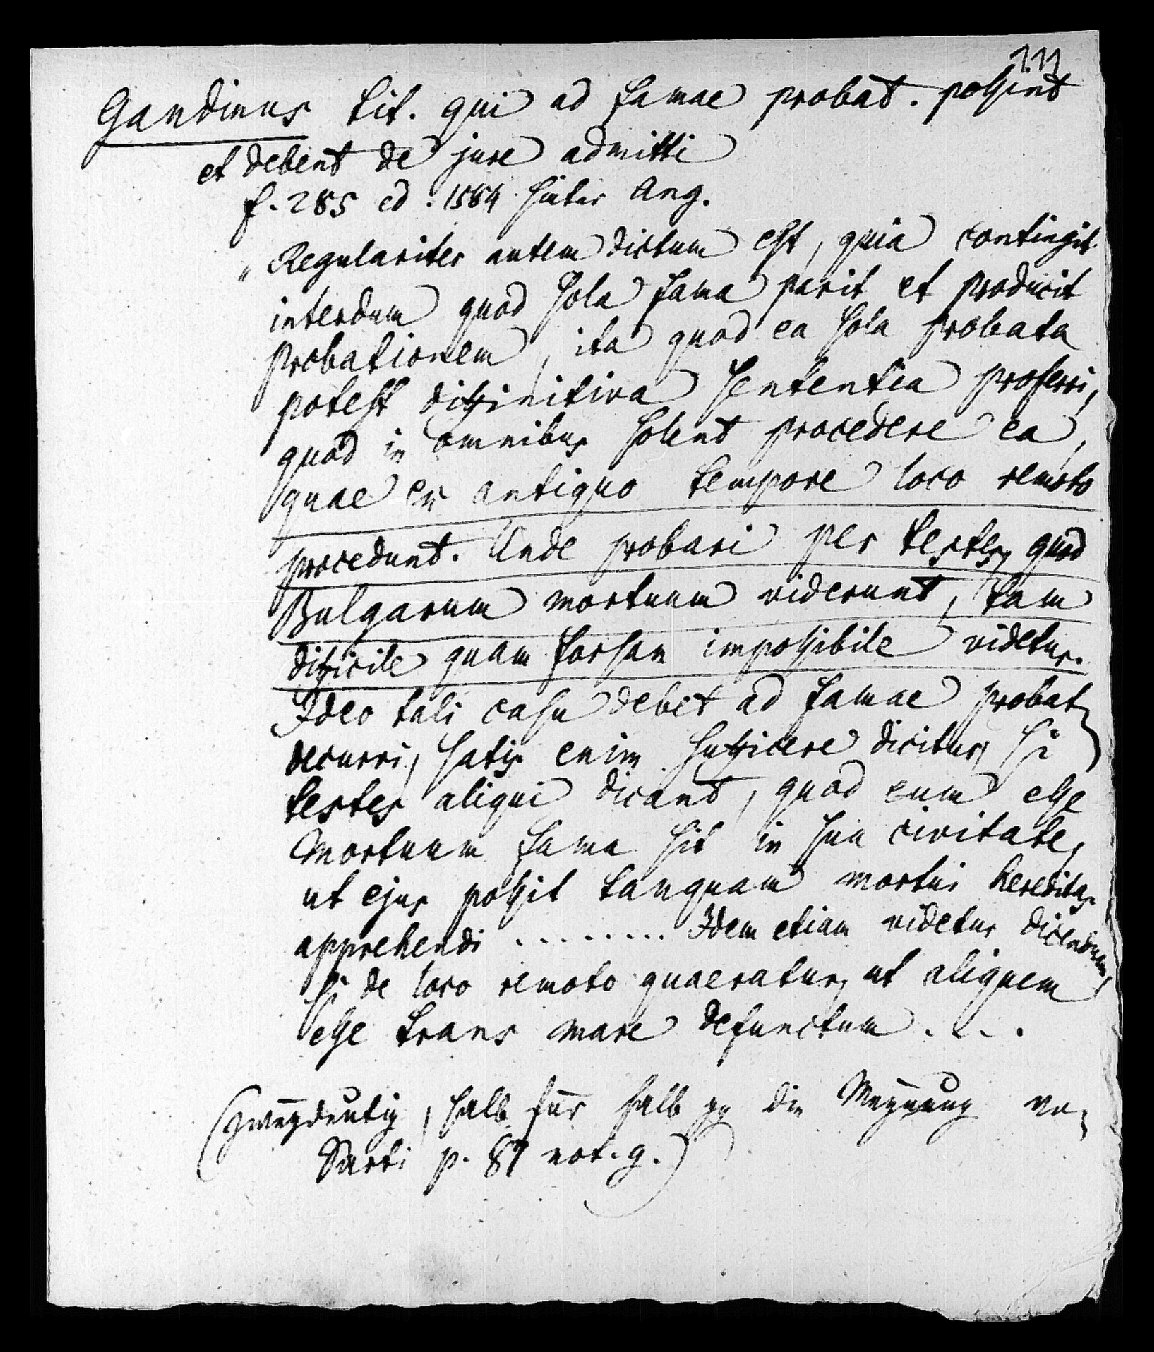 111
Gandinus tit. qui ad famae probat. possint
et debent de jure admitti
f. 285 ed. 1584 hinter Ang.
„Regulariter autem dictum est, quia contingit
interdum quod sola fama parit et producit
probationem, ita quod ea sola probata
potest diffinitiva sententia proferri,
quod in omnibus solent procedere ea,
quae ex antiquo tempore loco remoto
procedunt. Unde probari per testes, quod
Bulgarum mortuum viderunt, tam
difficile quam forsan impossibile videtur.
Ideo tali casu debet ad famae probat
decurri, satis enim sufficere dicitur, si
testes aliqui dicant, quod eum esse
mortuum fama sit in sua civitate,
ut ejus possit tanquam mortui hereditas
apprehendi ........ Idem etiam videtur dicendum,
si de loco remoto quaeratur, ut aliquem
esse trans mare defunctum ...
(zweydeutig, halb für halb gg die Meynung von
Sarti p. 87 not. g.)